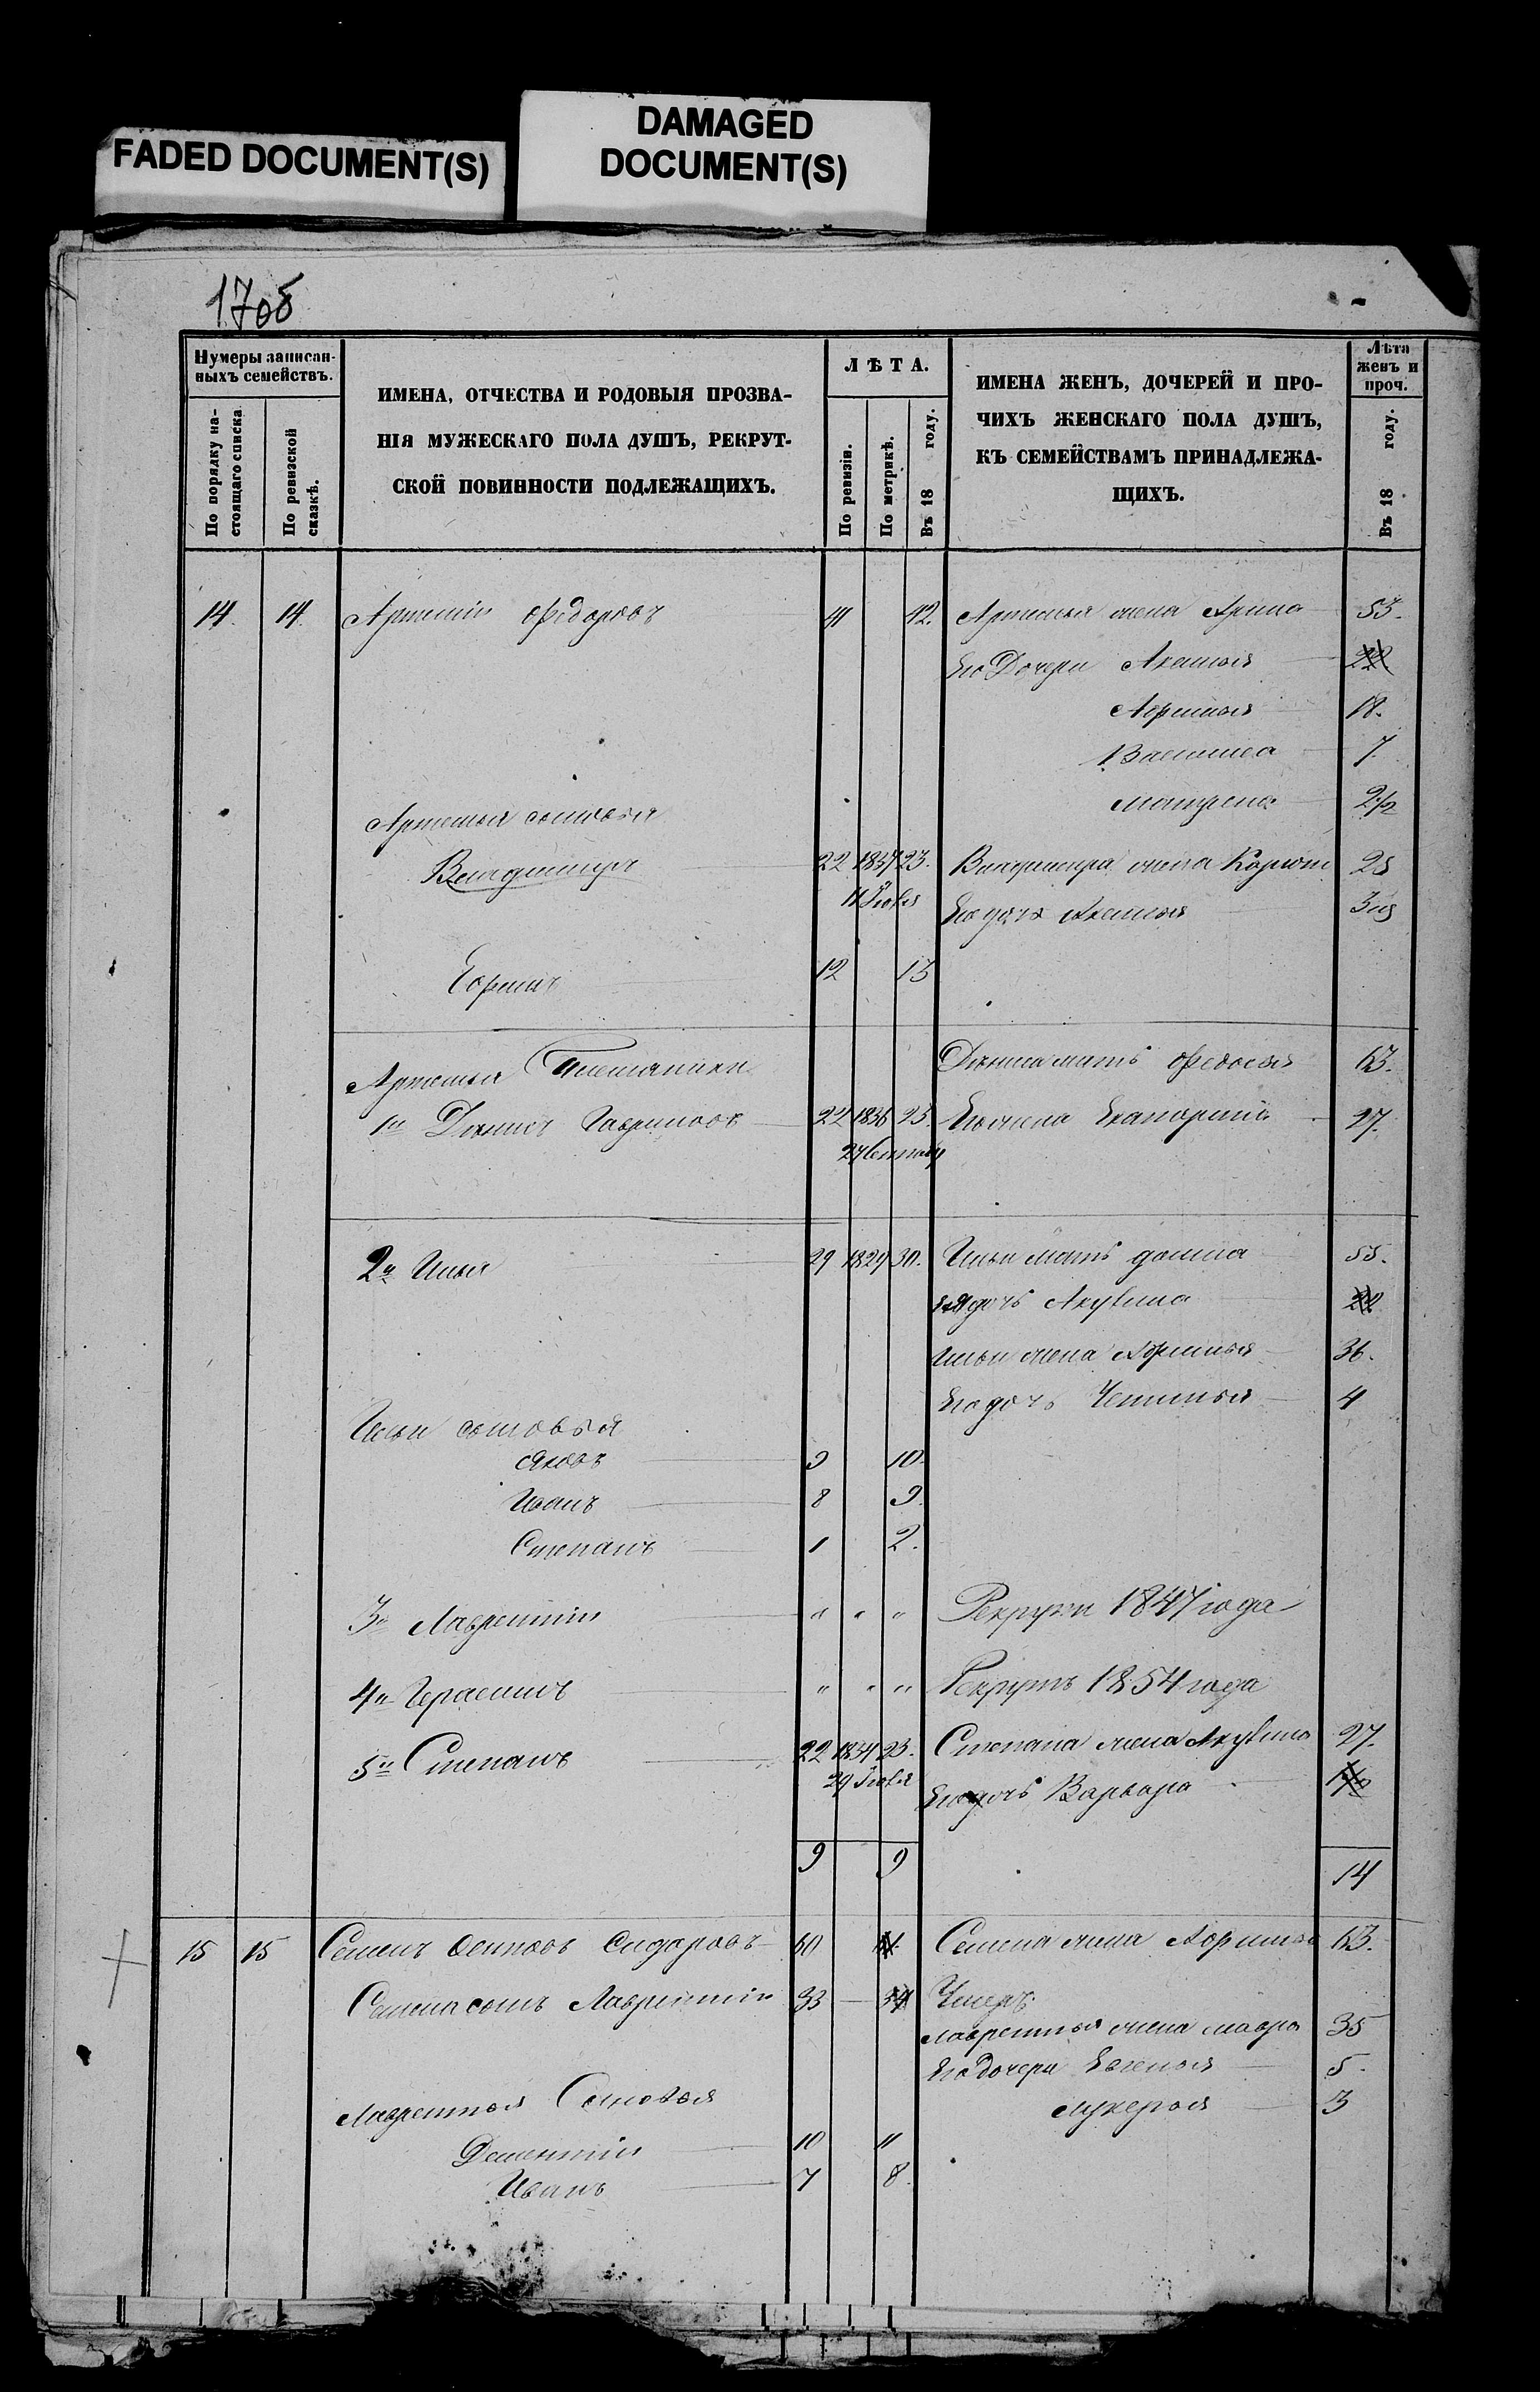 FADED DOCUMENT(S)
DAMAGED
DOCUMENT(S)
1708
Нумеры записан-
ныхъ семействъ.
По порядку на-
стоящаго списка.
По ревизской
сказкѣ.
ИМЕНА, ОТЧЕСТВА И РОДОВЫЯ ПРОЗВА-
НІЯ МУЖЕСКАГО ПОЛА ДУШЪ, РЕКРУТ-
СКОЙ ПОВИННОСТИ ПОДЛЕЖАЩИХЪ.
ЛѢТА.
По ревизіи.
По метрикѣ.
Въ 18 году.
ИМЕНА ЖЕНЪ, ДОЧЕРЕЙ И ПРО-
ЧИХЪ ЖЕНСКАГО ПОЛА ДУШЪ,
КЪ СЕМЕЙСТВАМЪ ПРИНАДЛЕЖА-
ЩИХЪ.
Лѣта
женъ и
проч.
Въ 18 году.
14. 14. Артемій Федоровъ 41 42. Артемья жена Арина 53.
Его Дочери Акалина 22
Афимья 18.
Василиса 7.
Матрена 2½
Артемья сыновья
Владимиръ 22 1837 23. Владимира жена 25
11 Іюля Его дочь
Ефимъ 12 13
Артемья Племянники Дениса мать Федосья 63.
1й Денисъ Гавриловъ 22 1836 23. Его жена Екатерина 27.
2й Илья 29 1829 30. Ильи мать Домна 55.
дочь Акулина 22
Ильи жена Афимья 36.
Его дочь 4
Ильи сыновья
Яковъ 9 10.
Иванъ 8 9.
Степанъ 1 2.
3й Лаврентій " " " Рекрутъ 1847 года
4й Герасимъ " " " Рекрутъ 1854 года
5й Степанъ 22 1837 23. Степана жена Акулина 27.
29 Іюля Его дочь Варвара
9 9 14
15 15 Семенъ Осиповъ Сидоровъ 60 61. Семена жена Афимья 63.
Семена сынъ Лаврентій 33 34 Умеръ.
Лаврентья жена Мавра 35
Его дочери Евгенья 5.
Лукерья 3
Лаврентья Сыновья
Дементій 10 11
Иванъ 7 8.